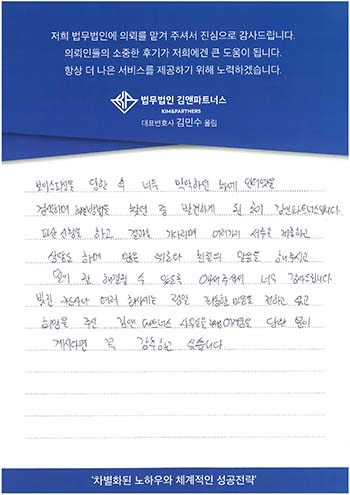 저희 법무법인에 의뢰를 맡겨 주셔서 진심으로 감사드립니다.
의뢰인들의 소중한 후기가 저희에겐 큰 도움이 됩니다.
항상 더 나은 서비스를 제공하기 위해 노력하겠습니다.
법무법인 김앤파트너스
KIM&PARTNERS
대표변호사 김민수 올림
보이스피싱을 당한 후 너무 막막하던 차에 인터넷을
검색하며 해결방법을 찾던 중 발견하게 된 곳이 김앤파트너스입니다.
파산 신청을 하고 결과를 기다리며 여러가지 서류를 제출하고
상담도 하며 많은 위로와 최선의 말씀을 해주시고
일이 잘 해결될 수 있도록 이끌어주셔서 너무 감사드립니다.
변호사나 여러 정말 마음을 전하고 싶고
희망을 주신 김앤파트너스 당한 분이
계시다면 꼭 강추하고 싶습니다.
'차별화된 노하우와 체계적인 성공전략'